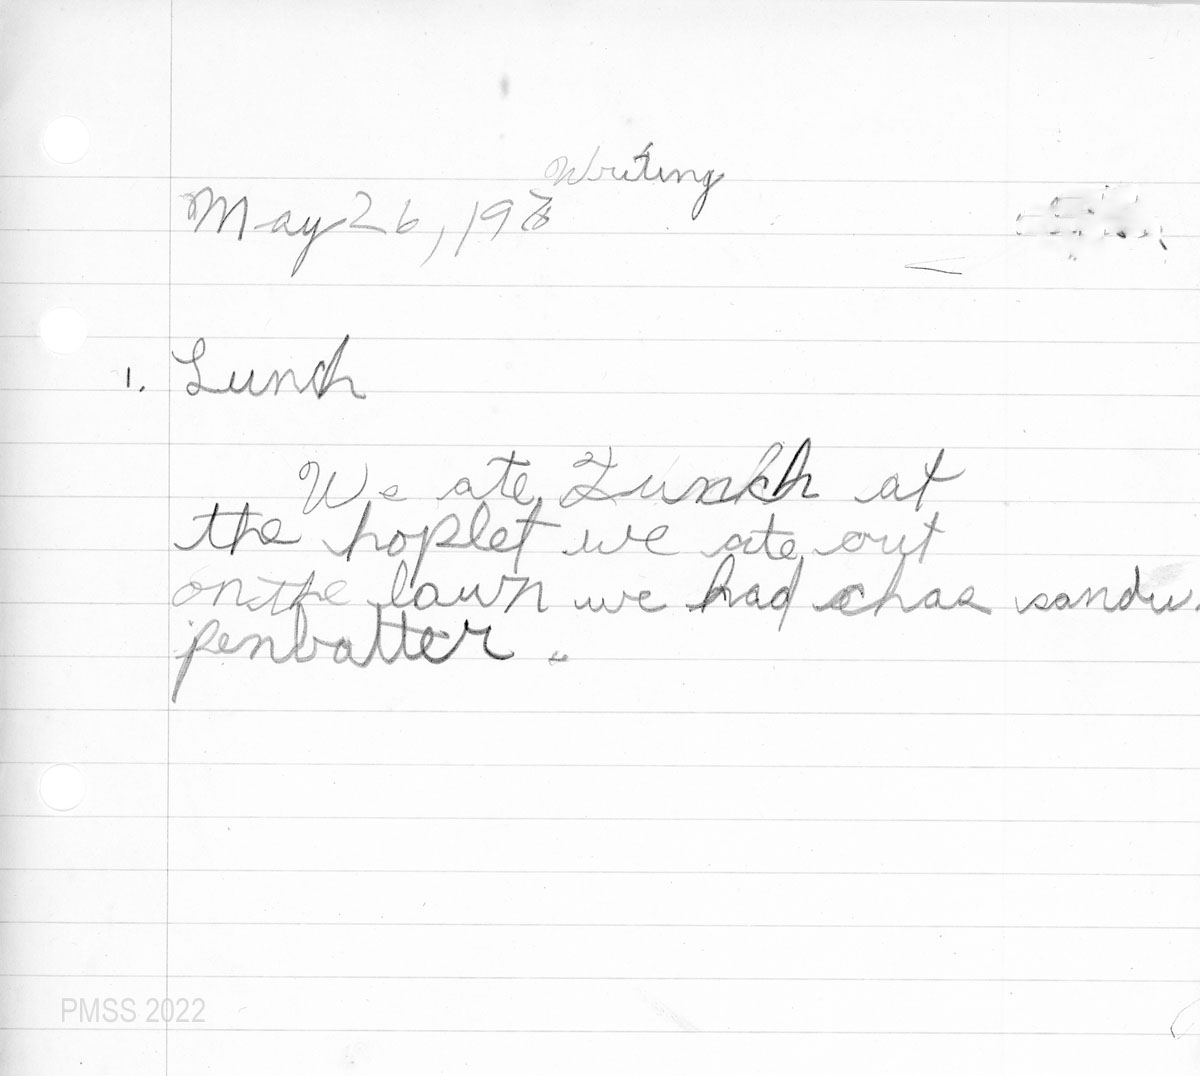 Writing
May 26, 197
1. Lunch
We ate Lunkch at
the hoplet we ate out
on the lawn we had chaa sandw
penbatter.
PMSS 2022